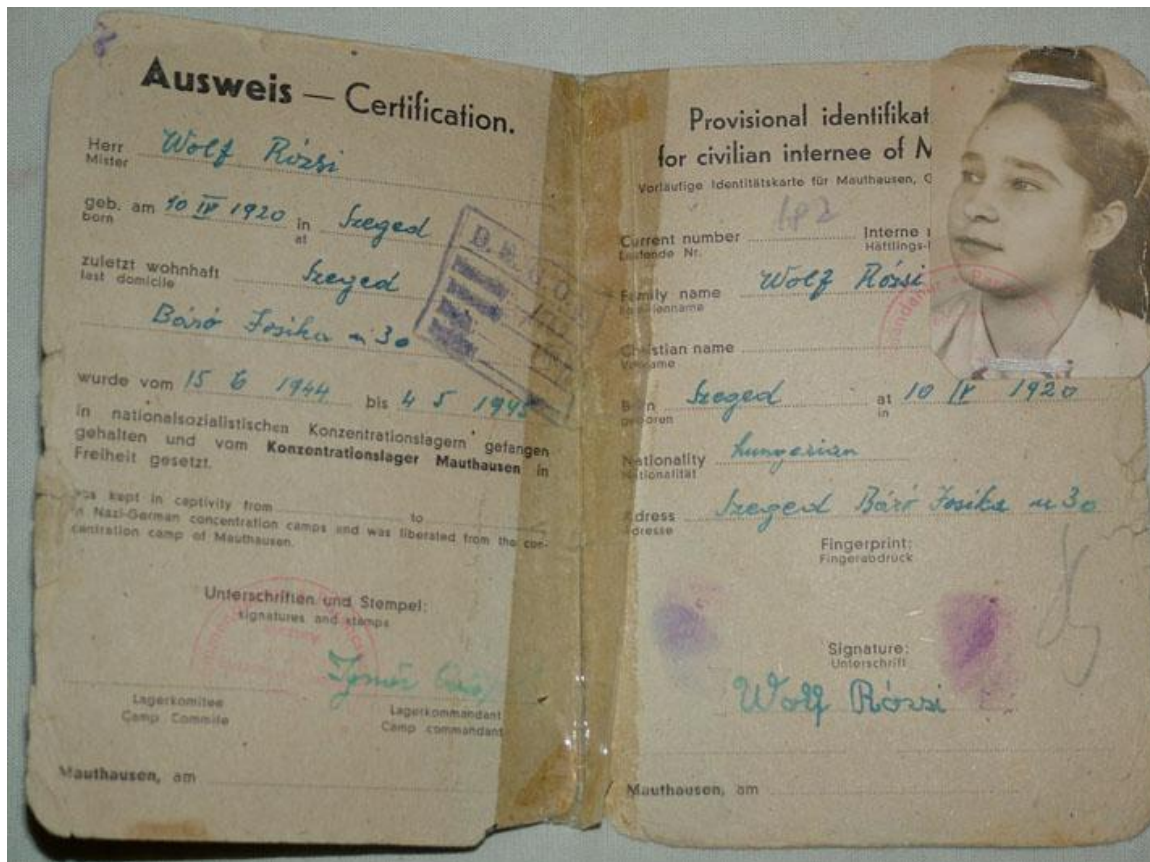 Ausweis — Certification.
Herr Wolf Rózsi
Mister
geb. am 10 IV 1920 in Szeged
born at
zuletzt wohnhaft Szeged
last domicile
Báró Jósika u 30
wurde vom 15 6 1944 bis 4 5 1945
in nationalsozialistischen Konzentrationslagern gefangen
gehalten und vom Konzentrationslager Mauthausen in
Freiheit gesetzt.
was kept in captivity from to
in Nazi-German concentration camps and was liberated from the con-
centration camp of Mauthausen.
Unterschriften und Stempel:
signatures and stamps
Lagerkomitee Lagerkommandant
Camp Commite Camp commandant
Mauthausen, am
Provisional identifikat
for civilian internee of M
Vorläufige Identitätskarte für Mauthausen,
Current number Interne
Laufende Nr. Häftlings-
Family name Wolf Rózsi
Christian name
Born Szeged at 10 IV 1920
geboren in
Nationality hungarian
Nationalität
Adress Szeged Báró Jósika u 30
Adresse
Fingerprint:
Fingerabdruck
Signature:
Unterschrift
Wolf Rózsi
Mauthausen, am